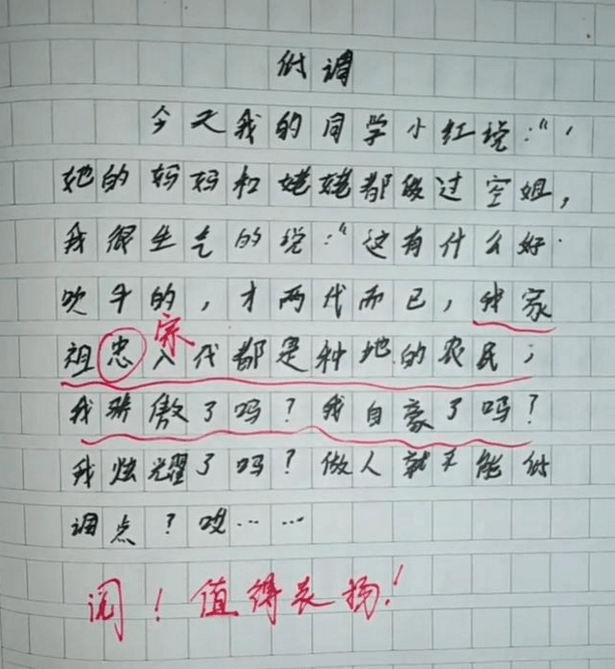 低调
今天我的同学小红说:“,
她的妈妈和姥姥都做过空姐,
我很生气的说:“这有什么好
吹牛的,才两代而已,我家
宗
祖忠八代都是种地的农民,
我骄傲了吗?我自豪了吗?
我炫耀了吗?做人就不能低
调点?哎……
阅!值得表扬!